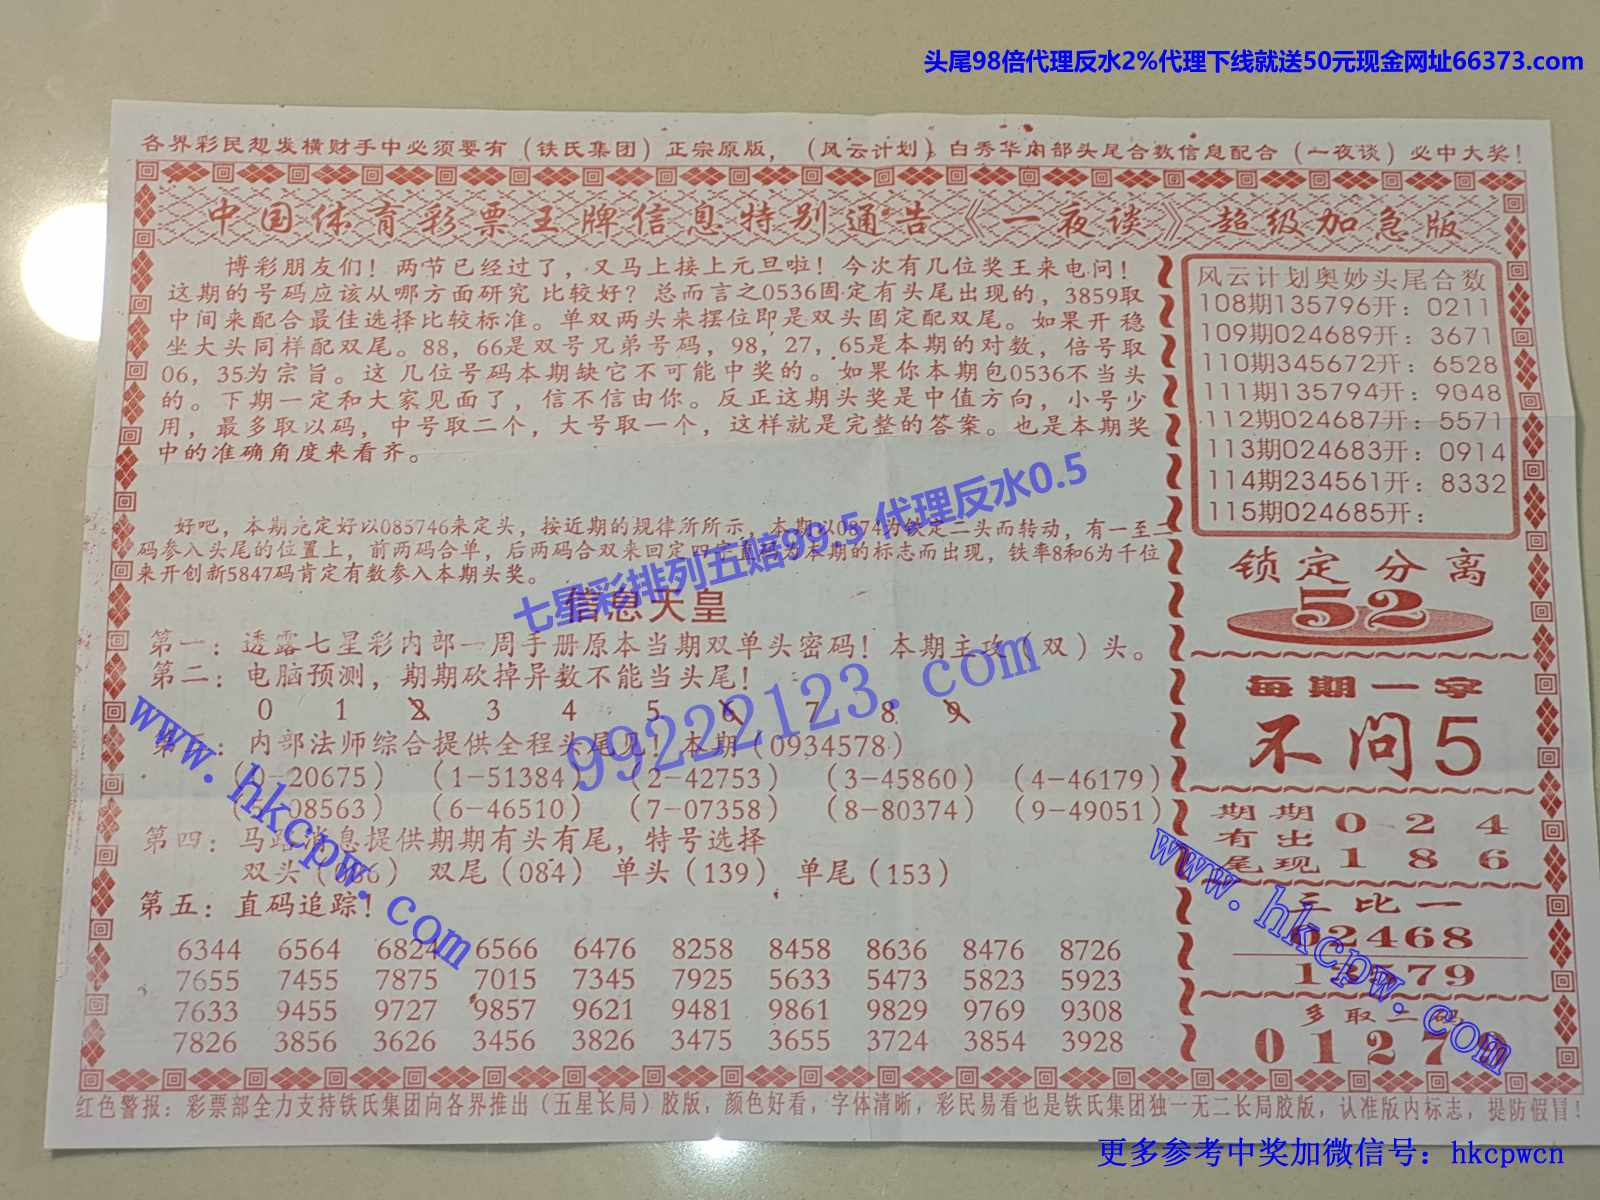 头尾98倍代理反水2%代理下线就送50元现金网址66373.com
各界彩民想发横财手中必须要有（铁氏集团）正宗原版，（风云计划）白秀华内部头尾合数信息配合（一夜谈）必中大奖！
中国体育彩票王牌信息特别通告《一夜谈》超级加急版
博彩朋友们！两节已经过了，又马上接上元旦啦！今次有几位奖王来电问！
这期的号码应该从哪方面研究 比较好？总而言之0536固定有头尾出现的，3859取
中间来配合最佳选择比较标准。单双两头来摆位即是双头固定配双尾。如果开 稳
坐大头同样配双尾。88，66是双号兄弟号码，98，27，65是本期的对数，倍号取
06，35为宗旨。这 几位号码本期缺它不可能中奖的。如果你本期包0536不当头
的。下期一定和大家见面了，信不信由你。反正这期头奖是中值方向，小号少
用，最多取以码，中号取二个，大号取一个，这样就是完整的答案。也是本期奖
中的准确角度来看齐。
好吧，本期先定好以085746来定头，按近期的规律所所示，本期以0874为铁定二头而转动，有一至二
码参入头尾的位置上，前两码合单，后两码合双来回定四定直码为本期的标志而出现，铁率8和6为千位
来开创新5847码肯定有数参入本期头奖。
七星彩排列五赔99.5 代理反水0.5
信息天皇
第一：透露七星彩内部一周手册原本当期双单头密码！本期主攻（双）头。
第二：电脑预测，期期砍掉异数不能当头尾！
0 1 2 3 4 5 6 7 8 9
99222123.com
第三：内部法师综合提供全程头尾见！本期（0934578）
（0-20675）（1-51384）（2-42753）（3-45860）（4-46179）
（5-08563）（6-46510）（7-07358）（8-80374）（9-49051）
第四：马路消息提供期期有头有尾，特号选择
双头（086） 双尾（084） 单头（139） 单尾（153）
第五：直码追踪！
6344 6564 6824 6566 6476 8258 8458 8636 8476 8726
7655 7455 7875 7015 7345 7925 5633 5473 5823 5923
7633 9455 9727 9857 9621 9481 9861 9829 9769 9308
7826 3856 3626 3456 3826 3475 3655 3724 3854 3928
www.hkcpw.com
风云计划奥妙头尾合数
108期135796开：0211
109期024689开：3671
110期345672开：6528
111期135794开：9048
112期024687开：5571
113期024683开：0914
114期234561开：8332
115期024685开：
锁定分离
52
每期一字
不问5
期期有出尾现
0 2 4
1 8 6
三比一
02468
13579
多取二码
0 1 2 7
www.hkcpw.com
红色警报：彩票部全力支持铁氏集团向各界推出（五星长局）胶版，颜色好看，字体清晰，彩民易看也是铁氏集团独一无二长局胶版，认准版内标志，提防假冒！
更多参考中奖加微信号：hkcpwcn